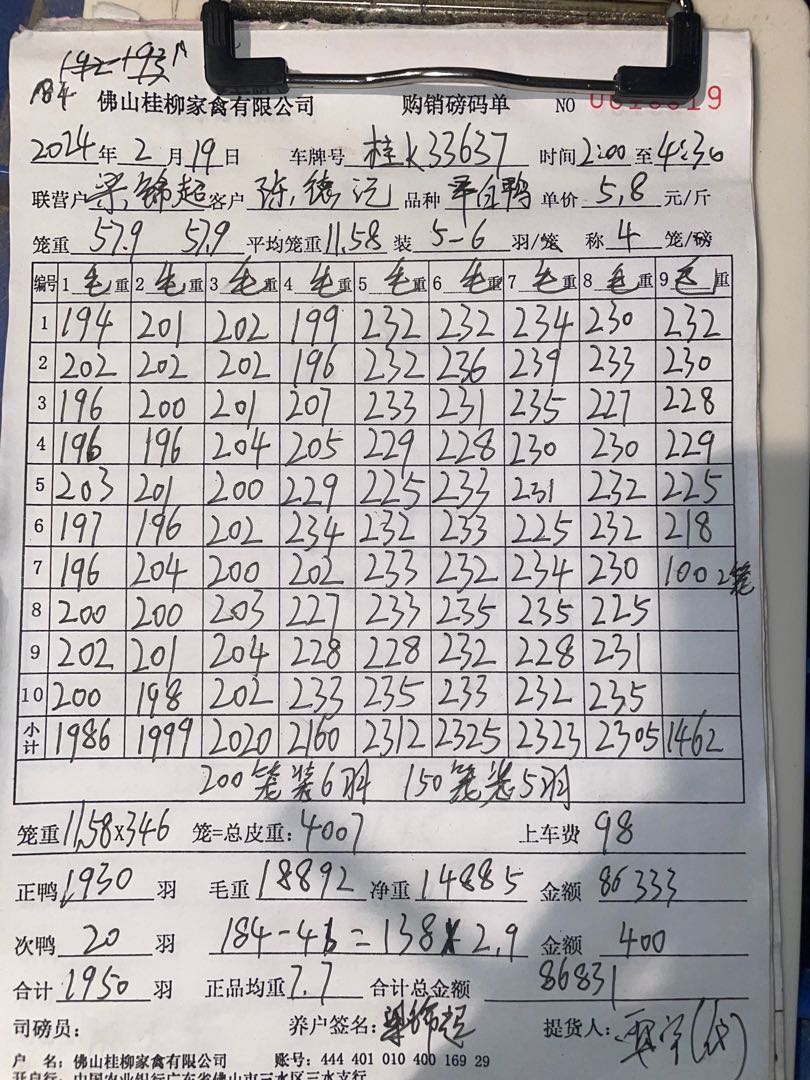 192-193A
184
佛山桂柳家禽有限公司 购销磅码单 NO 19
2024年2月19日 车牌号 桂K33637 时间2:00至4:30
联营户 梁锦超 客户 陈德沅 品种 单价 5.8 元/斤
笼重 57.9 57.9 平均笼重11.58 装 5-6 羽/笼 称 4 笼/磅
编号 1 毛重 2 毛重 3 毛重 4 毛重 5 毛重 6 毛重 7 毛重 8 毛重 9 毛重
1 194 201 202 199 232 232 234 230 232
2 202 202 202 196 232 236 239 233 230
3 196 200 201 207 233 231 235 227 228
4 196 196 204 205 229 228 230 230 229
5 203 201 200 229 225 233 231 232 225
6 197 196 202 234 232 233 225 232 218
7 196 204 200 202 233 232 234 230 100 2笼
8 200 200 203 227 233 235 235 225
9 202 201 204 228 228 232 228 231
10 200 198 202 233 235 233 232 235
小计 1986 1999 2020 2160 2312 2325 2323 2305 1462
200笼装6羽 150笼装5羽
笼重11.58×346 笼=总皮重:4007 上车费 98
正鸭 1930 羽 毛重 18892 净重 14885 金额 86333
次鸭 20 羽 184-46=138×2.9 金额 400
合计 1950 羽 正品均重7.7 合计总金额 86831
司磅员: 养户签名:梁锦超 提货人:
户 名: 佛山桂柳家禽有限公司 账号: 444 401 010 400 169 29
开户行: 中国农业银行广东省佛山市三水区三水支行